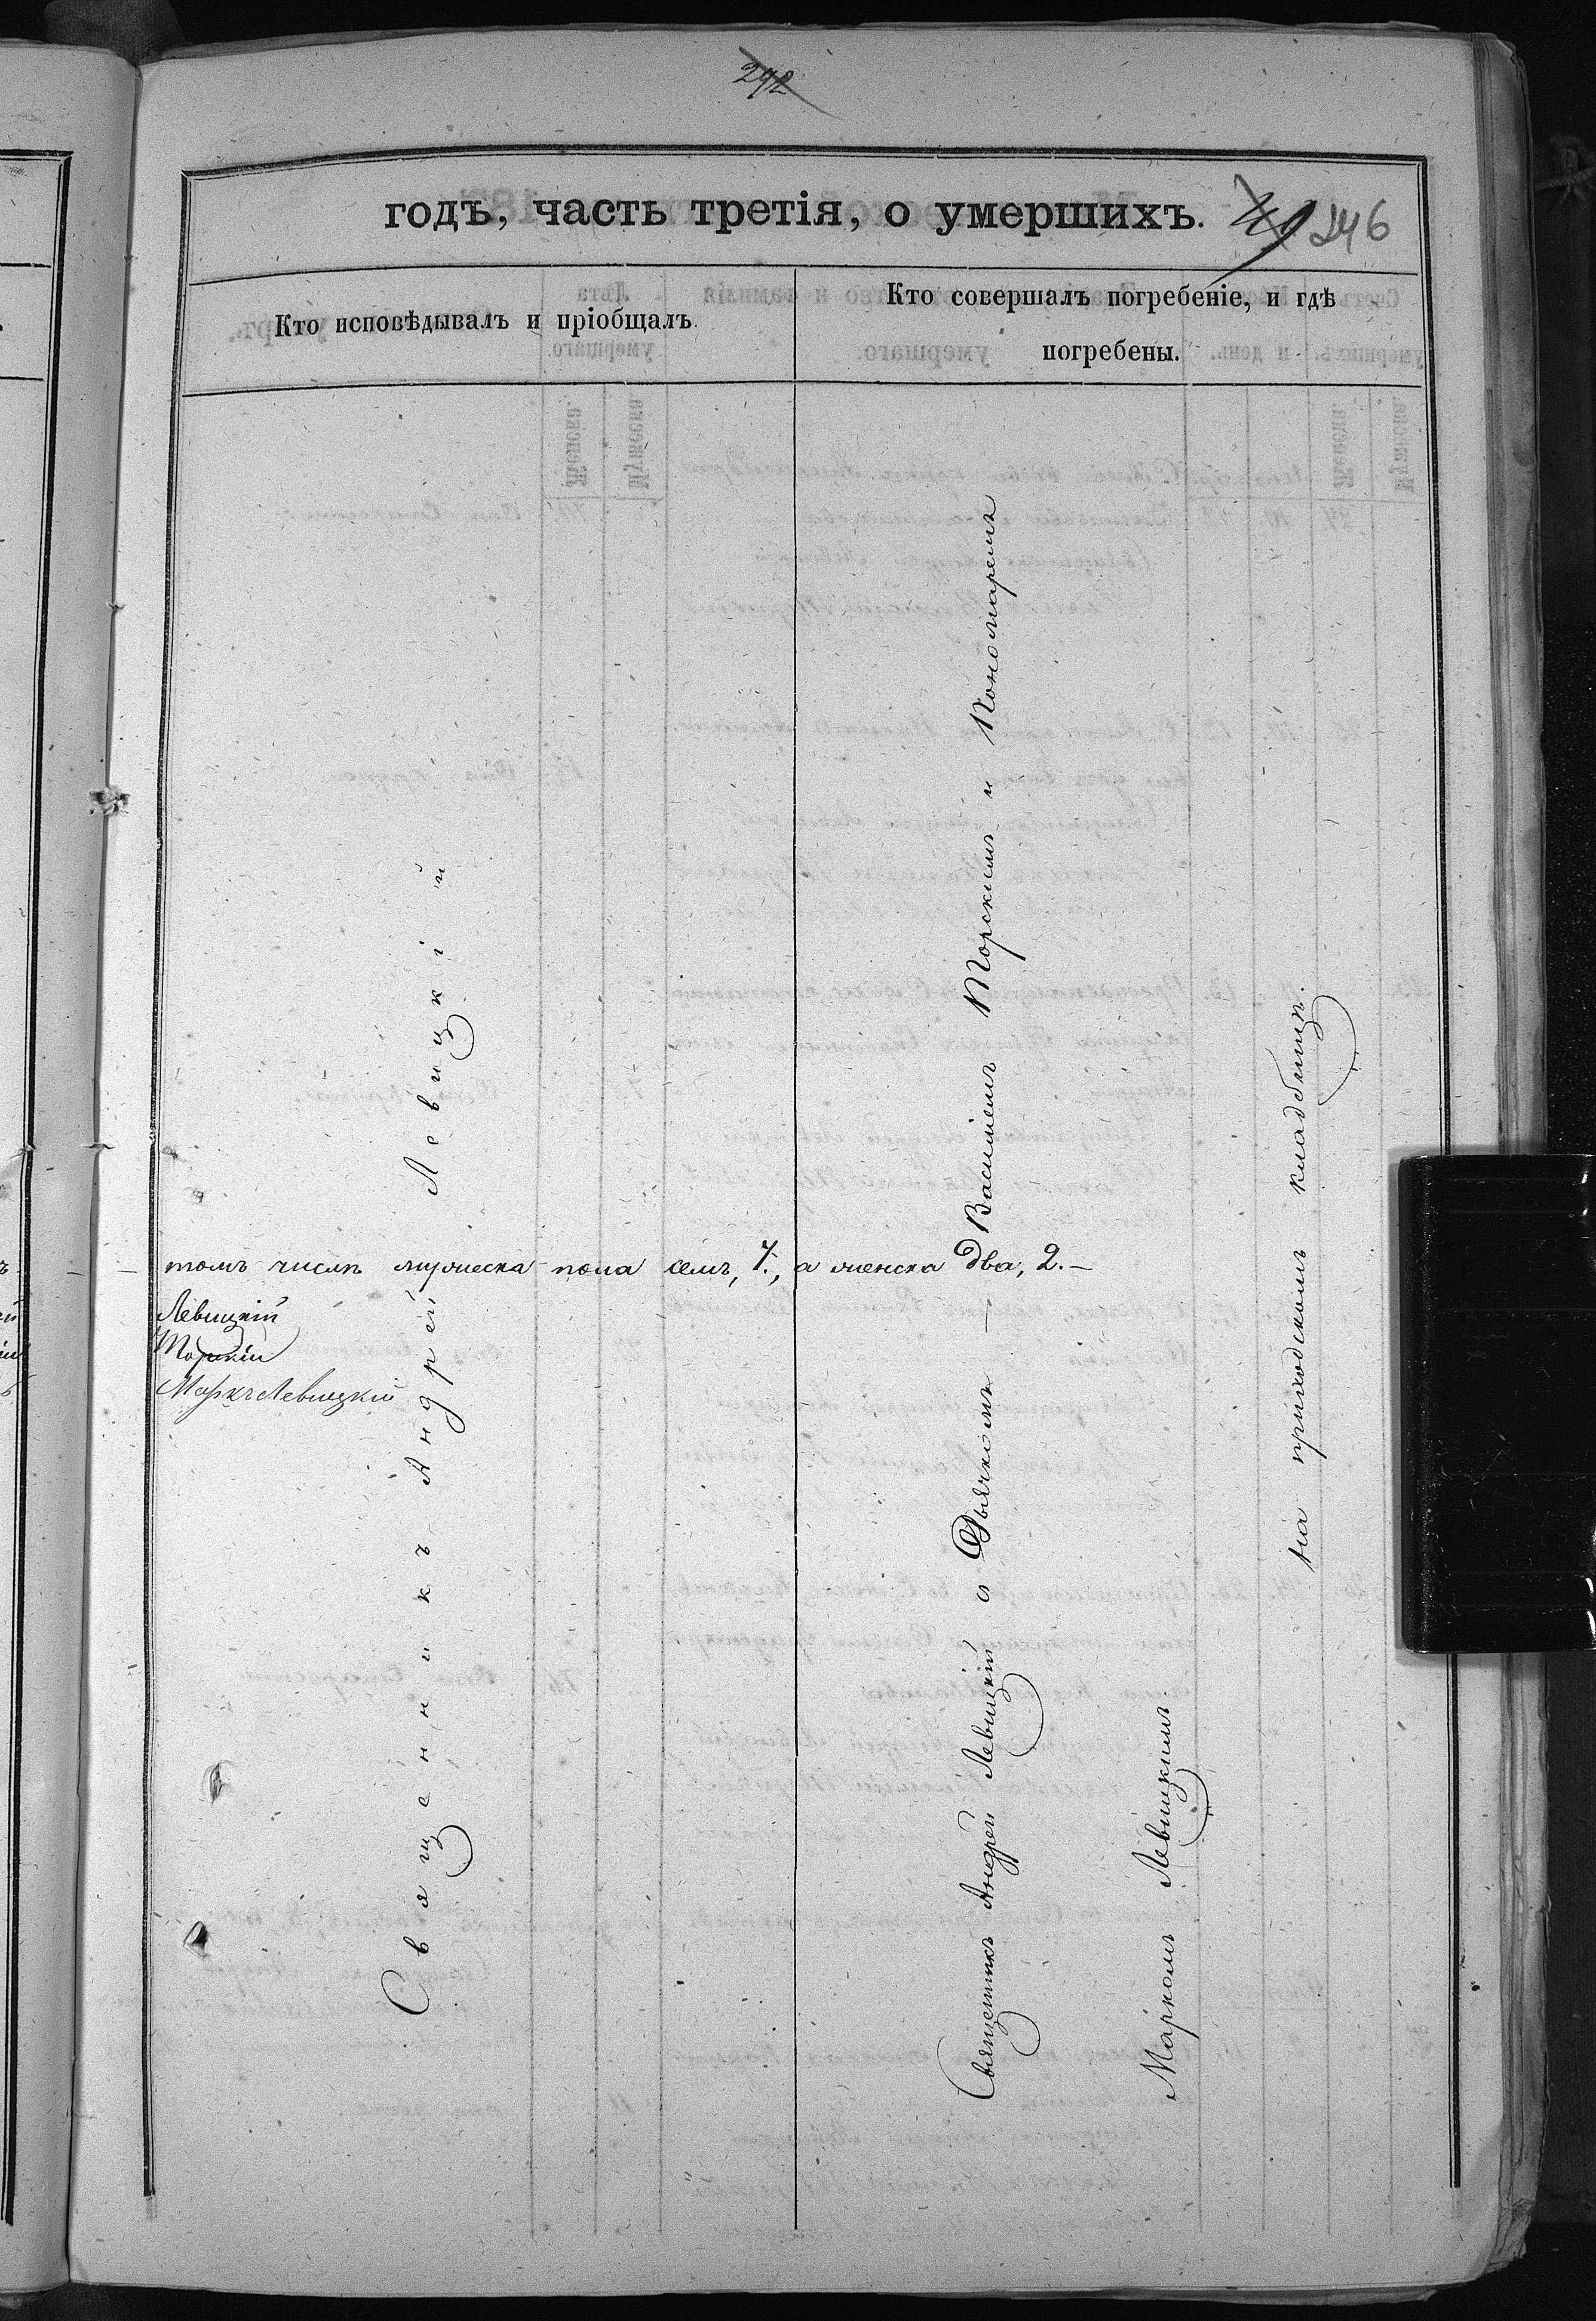 292
годъ, часть третія, о умершихъ. 49 246
Кто исповѣдывалъ и пріобщалъ.
Кто совершалъ погребеніе, и гдѣ
погребены.
Священникъ Андрей Левицкій
томъ числѣ мужеска пола семь, 7., а женска два, 2.—
Левицкій
Торскій
Маркъ Левицкій
Священникъ Андрей Левицкій съ Дьячкомъ — Василіемъ Торскимъ и Пономаремъ
Маркомъ Левицкимъ
на приходскомъ кладбищѣ.